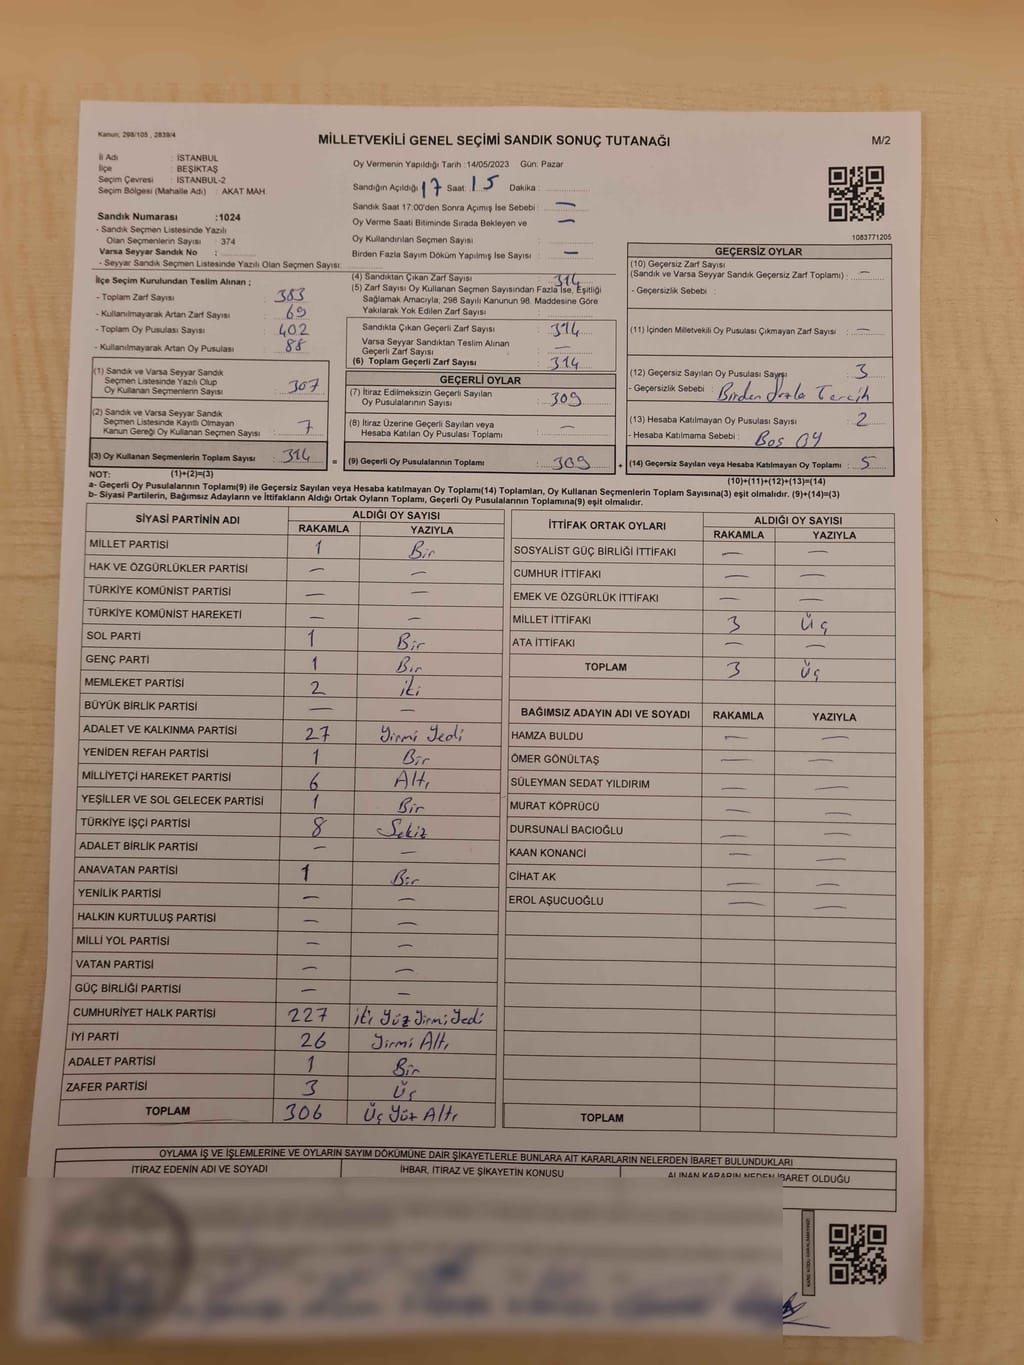 Kanun; 298/105 , 2839/4
MİLLETVEKİLİ GENEL SEÇİMİ SANDIK SONUÇ TUTANAĞI
M/2
İl Adı : İSTANBUL
İlçe : BEŞİKTAŞ
Seçim Çevresi : İSTANBUL-2
Seçim Bölgesi (Mahalle Adı) : AKAT MAH.
Sandık Numarası :1024
- Sandık Seçmen Listesinde Yazılı
Olan Seçmenlerin Sayısı : 374
Varsa Seyyar Sandık No :
- Seyyar Sandık Seçmen Listesinde Yazılı Olan Seçmen Sayısı:
Oy Vermenin Yapıldığı Tarih :14/05/2023 Gün: Pazar
Sandığın Açıldığı 17 Saat 15 Dakika :
Sandık Saat 17:00'den Sonra Açımış İse Sebebi : —
Oy Verme Saati Bitiminde Sırada Bekleyen ve —
Oy Kullandırılan Seçmen Sayısı :
Birden Fazla Sayım Döküm Yapılmış İse Sayısı : —
1083771205
İlçe Seçim Kurulundan Teslim Alınan ;
- Toplam Zarf Sayısı : 383
- Kullanılmayarak Artan Zarf Sayısı : 69
- Toplam Oy Pusulası Sayısı : 402
- Kullanılmayarak Artan Oy Pusulası : 88
(1) Sandık ve Varsa Seyyar Sandık
Seçmen Listesinde Yazılı Olup
Oy Kullanan Seçmenlerin Sayısı : 307
(2) Sandık ve Varsa Seyyar Sandık
Seçmen Listesinde Kayıtlı Olmayan
Kanun Gereği Oy Kullanan Seçmen Sayısı : 7
(3) Oy Kullanan Seçmenlerin Toplam Sayısı : 314
(4) Sandıktan Çıkan Zarf Sayısı : 314
(5) Zarf Sayısı Oy Kullanan Seçmen Sayısından Fazla İse, Eşitliği
Sağlamak Amacıyla; 298 Sayılı Kanunun 98. Maddesine Göre
Yakılarak Yok Edilen Zarf Sayısı :
Sandıkta Çıkan Geçerli Zarf Sayısı : 314
Varsa Seyyar Sandıktan Teslim Alınan
Geçerli Zarf Sayısı : —
(6) Toplam Geçerli Zarf Sayısı : 314
GEÇERLİ OYLAR
(7) İtiraz Edilmeksizin Geçerli Sayılan
Oy Pusulalarının Sayısı : 309
(8) İtiraz Üzerine Geçerli Sayılan veya
Hesaba Katılan Oy Pusulası Toplamı : —
= (9) Geçerli Oy Pusulalarının Toplamı : 309 +
GEÇERSİZ OYLAR
(10) Geçersiz Zarf Sayısı
(Sandık ve Varsa Seyyar Sandık Geçersiz Zarf Toplamı) : —
- Geçersizlik Sebebi :
(11) İçinden Milletvekili Oy Pusulası Çıkmayan Zarf Sayısı : —
(12) Geçersiz Sayılan Oy Pusulası Sayısı : 3
- Geçersizlik Sebebi : Birden fazla Tercih
(13) Hesaba Katılmayan Oy Pusulası Sayısı : 2
- Hesaba Katılmama Sebebi : Boş OY
(14) Geçersiz Sayılan veya Hesaba Katılmayan Oy Toplamı : 5
NOT: (1)+(2)=(3)
(10)+(11)+(12)+(13)=(14)
a- Geçerli Oy Pusulalarının Toplamı(9) ile Geçersiz Sayılan veya Hesaba katılmayan Oy Toplamı(14) Toplamları, Oy Kullanan Seçmenlerin Toplam Sayısına(3) eşit olmalıdır. (9)+(14)=(3)
b- Siyasi Partilerin, Bağımsız Adayların ve İttifakların Aldığı Ortak Oyların Toplamı, Geçerli Oy Pusulalarının Toplamına(9) eşit olmalıdır.
SİYASİ PARTİNİN ADI ALDIĞI OY SAYISI
RAKAMLA YAZIYLA
MİLLET PARTİSİ 1 Bir
HAK VE ÖZGÜRLÜKLER PARTİSİ — —
TÜRKİYE KOMÜNİST PARTİSİ — —
TÜRKİYE KOMÜNİST HAREKETİ — —
SOL PARTİ 1 Bir
GENÇ PARTİ 1 Bir
MEMLEKET PARTİSİ 2 iki
BÜYÜK BİRLİK PARTİSİ — —
ADALET VE KALKINMA PARTİSİ 27 Yirmi Yedi
YENİDEN REFAH PARTİSİ 1 Bir
MİLLİYETÇİ HAREKET PARTİSİ 6 Altı
YEŞİLLER VE SOL GELECEK PARTİSİ 1 Bir
TÜRKİYE İŞÇİ PARTİSİ 8 Sekiz
ADALET BİRLİK PARTİSİ — —
ANAVATAN PARTİSİ 1 Bir
YENİLİK PARTİSİ — —
HALKIN KURTULUŞ PARTİSİ — —
MİLLİ YOL PARTİSİ — —
VATAN PARTİSİ — —
GÜÇ BİRLİĞİ PARTİSİ — —
CUMHURİYET HALK PARTİSİ 227 iki Yüz Yirmi Yedi
İYİ PARTİ 26 Yirmi Altı
ADALET PARTİSİ 1 Bir
ZAFER PARTİSİ 3 Üç
TOPLAM 306 Üç Yüz Altı
İTTİFAK ORTAK OYLARI ALDIĞI OY SAYISI
RAKAMLA YAZIYLA
SOSYALİST GÜÇ BİRLİĞİ İTTİFAKI — —
CUMHUR İTTİFAKI — —
EMEK VE ÖZGÜRLÜK İTTİFAKI — —
MİLLET İTTİFAKI 3 Üç
ATA İTTİFAKI — —
TOPLAM 3 Üç
BAĞIMSIZ ADAYIN ADI VE SOYADI RAKAMLA YAZIYLA
HAMZA BULDU — —
ÖMER GÖNÜLTAŞ — —
SÜLEYMAN SEDAT YILDIRIM — —
MURAT KÖPRÜCÜ — —
DURSUNALİ BACIOĞLU — —
KAAN KONANCİ — —
CİHAT AK — —
EROL AŞUCUOĞLU — —
TOPLAM
OYLAMA İŞ VE İŞLEMLERİNE VE OYLARIN SAYIM DÖKÜMÜNE DAİR ŞİKAYETLERLE BUNLARA AİT KARARLARIN NELERDEN İBARET BULUNDUKLARI
İTİRAZ EDENİN ADI VE SOYADI İHBAR, İTİRAZ VE ŞİKAYETİN KONUSU ALINAN KARARIN NEDEN İBARET OLDUĞU